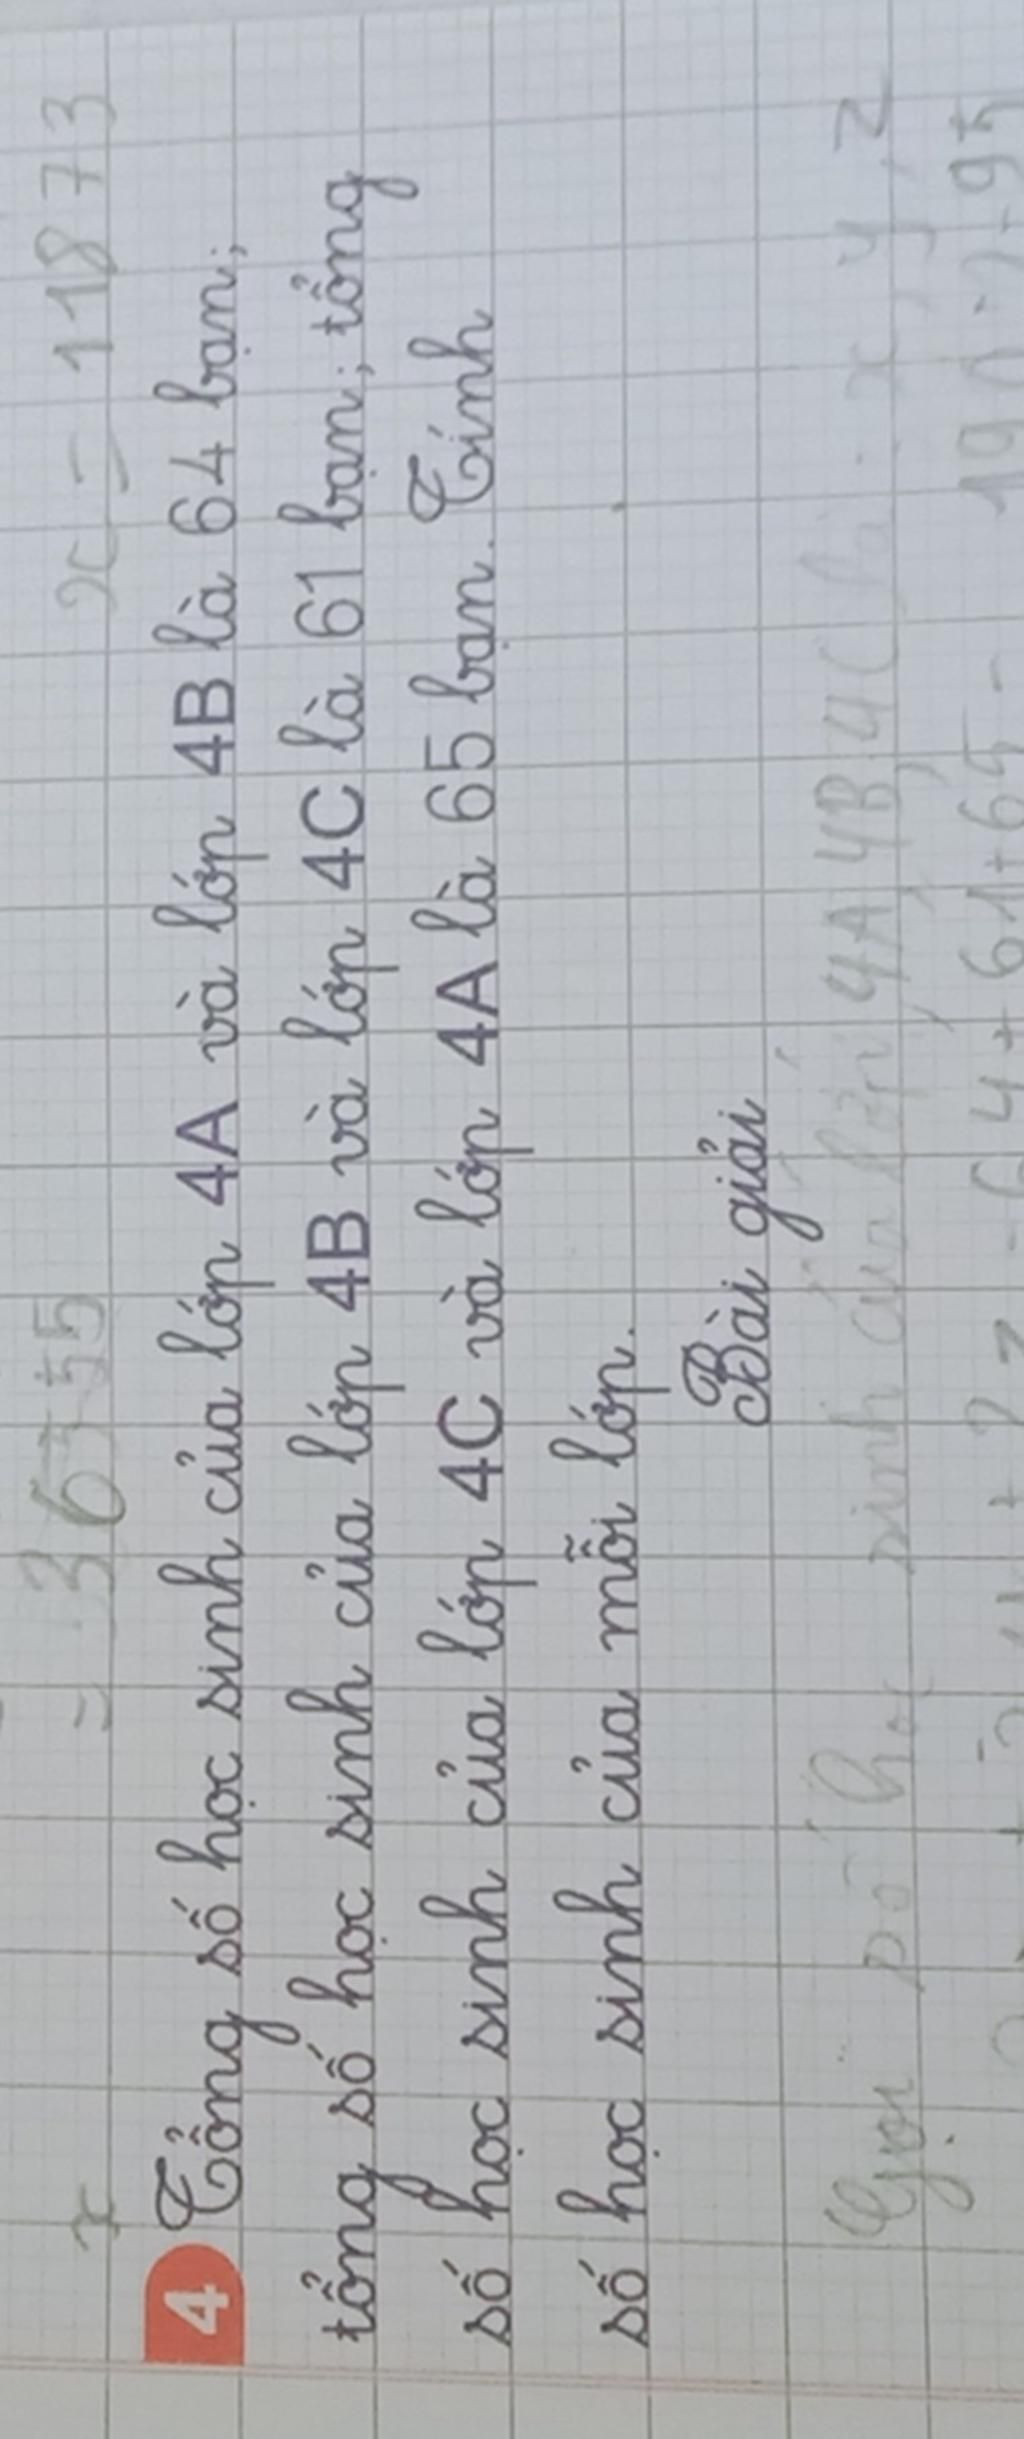 = 36555 x = 11873
x
4 Tổng số học sinh của lớp 4A và lớp 4B là 64 bạn;
tổng số học sinh của lớp 4B và lớp 4C là 61 bạn; tổng
số học sinh của lớp 4C và lớp 4A là 65 bạn. Tính
số học sinh của mỗi lớp.
Bài giải
Gọi số học sinh của lớp 4A, 4B, 4C là: x, y, z
64 + 61 + 65 = 190